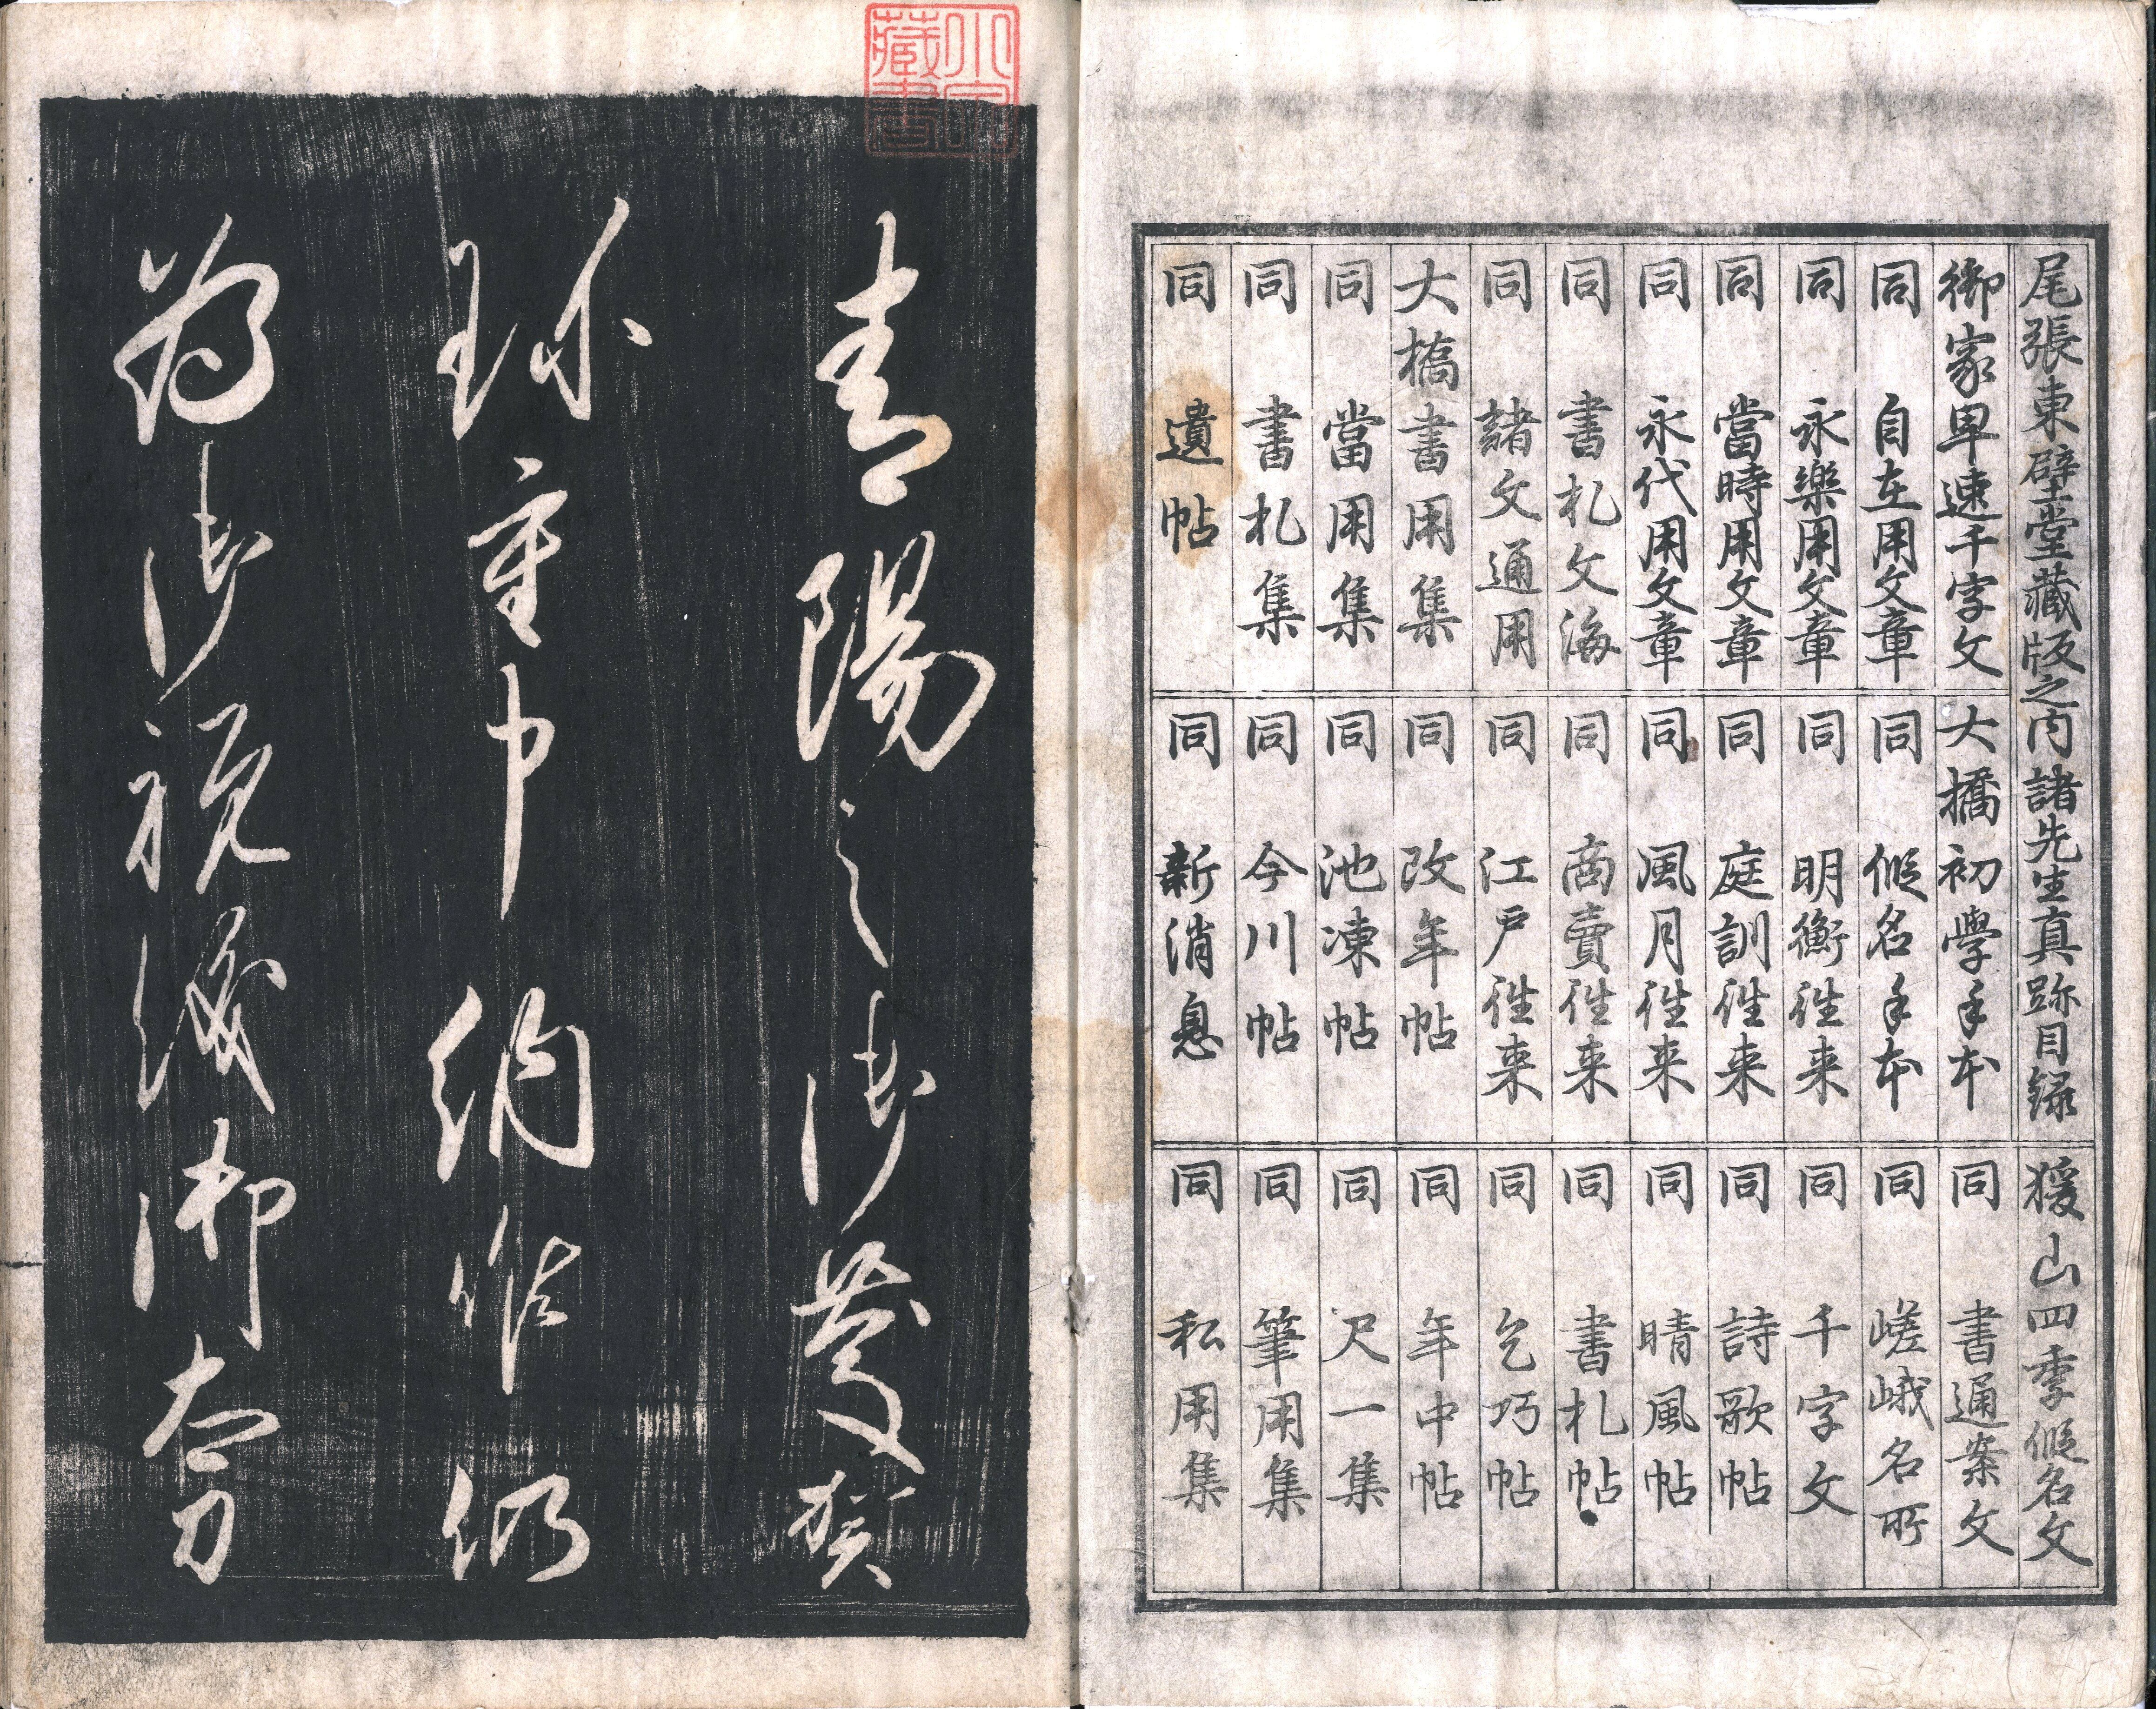 尾張東壁堂藏版之内諸先生真跡目録
御家早速千字文
同 自在用文章
同 永樂用文章
同 當時用文章
同 永代用文章
同 書札文海
同 諸文通用
大橋書用集
同 當用集
同 書札集
同 遺帖
大橋初學手本
同 假名手本
同 明衡徃来
同 庭訓徃来
同 風月徃来
同 商賣徃来
同 江戸徃来
同 改年帖
同 池凍帖
同 今川帖
同 新消息
猨山四季假名文
同 書通案文
同 嵯峨名所
同 千字文
同 詩歌帖
同 晴風帖
同 書札帖
同 乞巧帖
同 年中帖
同 尺一集
同 筆用集
同 私用集
青陽之御慶賀
珎重申納候仍
為御祝儀御太刀
藏書